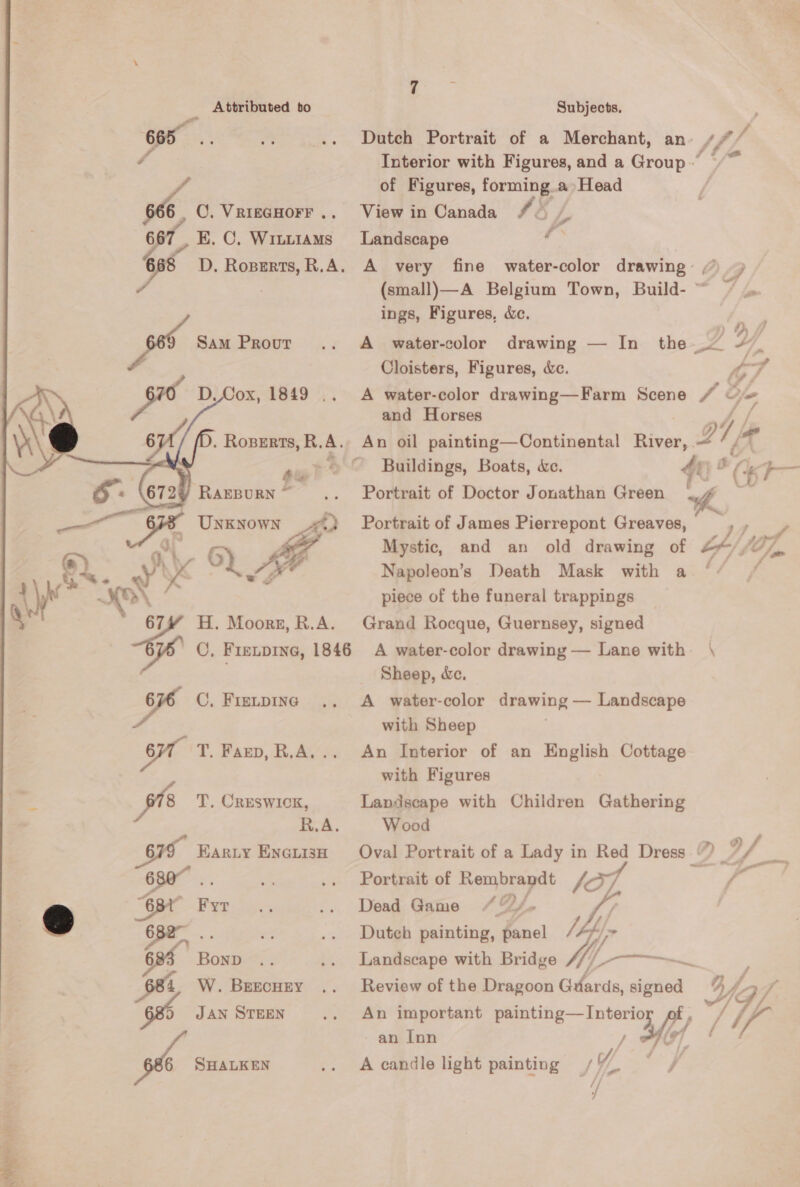 7
Attributed to Subjects.
665 .. .. .. Dutch Portrait of a Merchant, an
Interior with Figures, and a Group
of Figures, forming a Head
666 C. VRIEGHOFF .. View in Canada
667 E. C. WILLIAMS Landscape
668 D. ROBERTS, R.A. A very fine water-color drawing
(small)—A Belgium Town, Build-
ings, Figures, &c.
669 SAM PROUT .. A water-color drawing — In the
Cloisters, Figures, &c.
670 D. COX, 1849 .. A water-color drawing—Farm Scene
and Horses
671 D. ROBERTS, R.A. An oil painting—Continental River,
Buildings, Boats, &c.
672 RAEBURN .. Portrait of Doctor Jonathan Green
673 UNKNOWN Portrait of James Pierrepont Greaves,
Mystic, and an old drawing of
Napoleon's Death Mask with a
piece of the funeral trappings
674 H. MOORE, R.A. Grand Rocque, Guernsey, signed
675 C. FIELDING, 1846 A water-color drawing — Lane with
Sheep, &c.
676 C. FIELDING .. A water-color drawing — Landscape
with Sheep
677 T. FAED, R.A. .. An Interior of an English Cottage
with Figures
678 T. CRESWICK, Landscape with Children Gathering
R.A. Wood
679 EARLY ENGLISH Oval Portrait of a Lady in Red Dress
680 .. .. .. Portrait of Rembrandt
681 FYT .. .. Dead Game
682 .. .. .. Dutch painting, panel
683 BOND .. .. Landscape with Bridge
684 W. BEECHEY .. Review of the Dragoon Guards, signed
685 JAN STEEN .. An important painting—Interior of
an Inn
686 SHALKEN .. A candle light painting